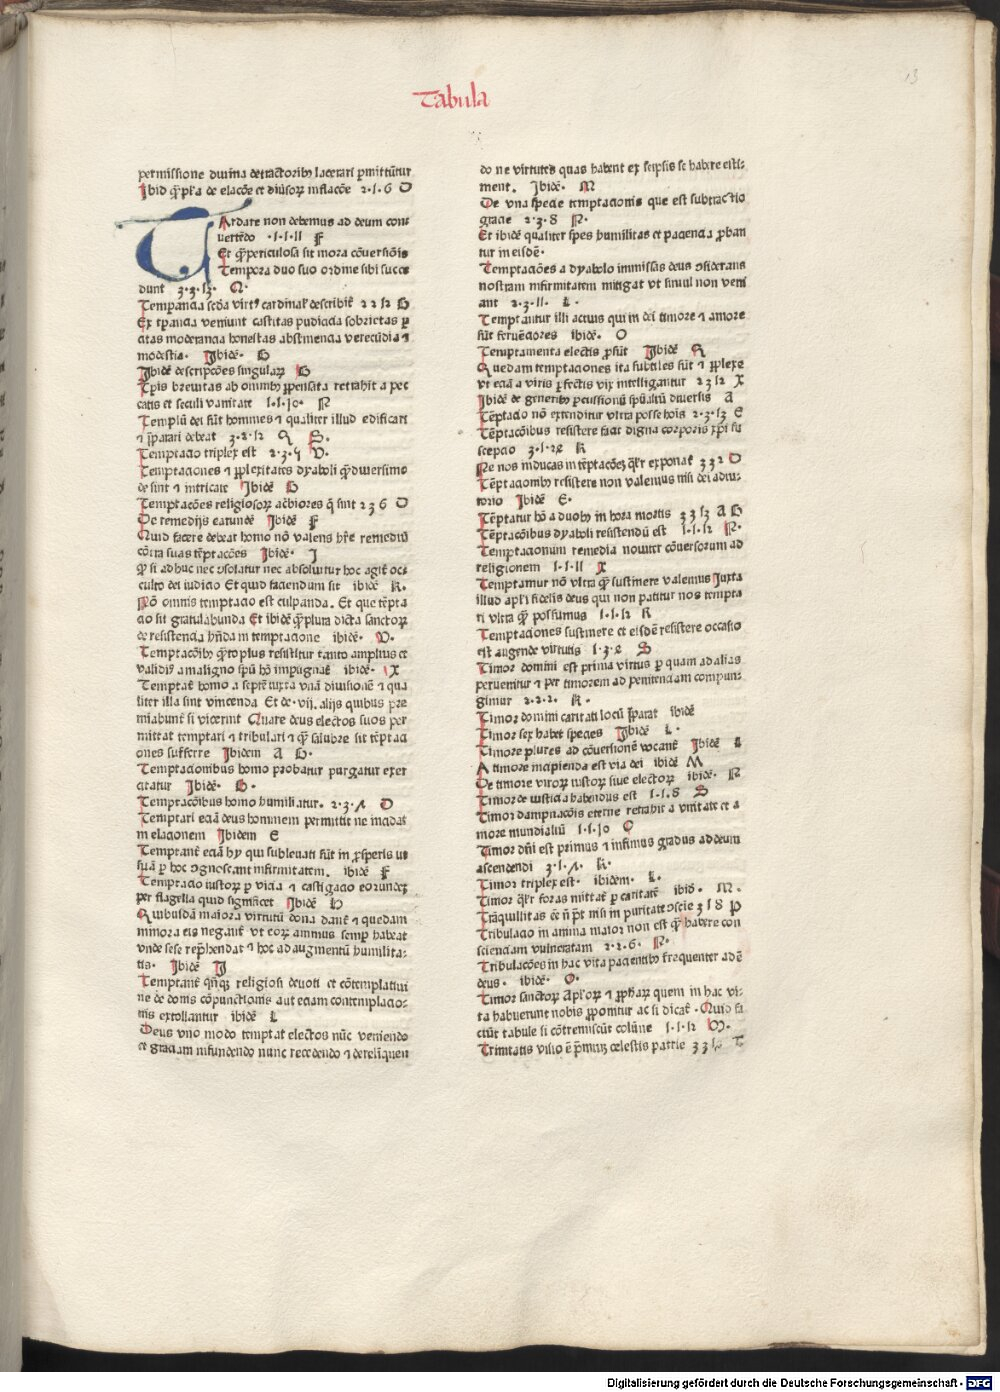 13
Tabula
permissione diuina detractorib₉ lacerari ꝑmittūtur
Ibid qꝫ pl'a de elacōe et diūsoꝝ inflacōe 2·1·6 D
TArdare non debemus ad deum con⸗
uertēdo ·1·1·11 F
Et qꝫ periculosa sit mora cōuersiōis
Tempora duo suo ordine sibi succe
dunt 3·3·13· Q·
Temꝑancia scd̄a virt₉ cardinal' describit᷑ 2 2 12 G
Ex tꝑancia veniunt castitas pudicicia sobrietas ꝑ
citas moderancia honestas abstinencia verecūdia ⁊
modestia· Ibidē· G
Ibidē descripcōes singularꝝ G
Tꝑis breuitas ab omnib₉ ꝓpensata retrahit a pec
catis et seculi vanitate 1·1·10· N
Templū dei sūt homines ⁊ qualiter illud edificari
⁊ p̄parari debeat 3·2·12 Q S·
Temptacio triplex est 2·3·9 V·
Temptaciones ⁊ ꝑplexitates dyaboli qꝫ diuersimo
de sint ⁊ intricate Ibidē G
Temptacōes religiosoꝝ ac̄biores q̄ sint 2 3 6 D
De remedijs earundē Ibidē F
Quid facere debeat homo nō valens hr̄e remediū
cōtra suas tēptacōes Ibidē· I
Qꝫ si adhuc nec ꝯsolatur nec absoluitur hoc agit᷑ oc⸗
culto dei iudicio Et quid faciendum sit ibidē K·
Nō omnis temptacio est culpanda. Et que tēpta
cio sit gratulabunda Et ibidē qꝫ plura dicta sanctoꝝ
de resistencia hn̄da in temptacione ibidē· V·
Temptacōib₉ qꝫtoplus resistitur tanto amplius et
validi₉ a maligno spū hō impugnat᷑ ibidē· X
Temptat᷑ homo a septē iuxta vnā diuisionē ⁊ qua
liter illa sint vincenda Et de ·vij· alijs quibus pre
miabunt᷑ si vicerint Quare deus electos suos per
mittat temptari ⁊ tribulari ⁊ qꝫ salubre sit tēptaci
ones sufferre Ibidem A G·
Temptacionibus homo probatur purgatur exer
citatur Ibidē· G·
Temptacōibus homo humiliatur· 2·3·7 D
Temptari eciā deus hominem permittit ne incidat
in elacionem Ibidem E
Temptant᷑ eciā hy qui subleuati sūt in ꝓsperis vt
suā ꝑ hoc ꝯgnoscant infirmitatem· ibidē F
Temptacio iustoꝝ ꝑ vicia ⁊ castigacio eorundeꝫ
per flagella quid significet Ibidē H
Quibusdā maiora virtutū dona dant᷑ ⁊ quedam
minora eis negant᷑ vt eoꝝ animus semꝑ habeat
vnde sese rep̄hendat ⁊ hoc ad augmentū humilita⸗
tis· Ibidē I
Temptant᷑ qn̄qꝫ religiosi deuoti et cōtemplatiui
ne de donis cōpunctionis aut eciam contemplacio⸗
nis extollantur ibidē L
Deus vno modo temptat electos nūc veniendo
et graciam infundendo nunc recedendo ⁊ derelīquen
do ne virtutes quas habent ex seipsis se habere esti⸗
ment· Ibidē· M
De vna specie temptacionis que est subtractio
gracie 2·3·8 N·
Et ibidē qualiter spes humilitas et paciencia ꝓban
tur in eisdē·
Temptacōes a dyabolo immissas deus ꝯsiderans
nostram infirmitatem mitigat vt simul non veni
ant 2·3·11· L·
Temptantur illi acrius qui in dei timore ⁊ amore
sūt feruēciores ibidē· O
Temptamenta electis ꝓsūt Ibidē R
Quedam temptaciones ita subtiles sūt ⁊ ꝑplexe
vt eciā a viris ꝑfectis vix intelligantur 2 3 12 X
Ibidē de generib₉ ꝑcussionū spūaliū diuersis A
Tēptacio nō extenditur vltra posse hoīs 2·3·13 E
Tēptacōibus resistere facit digna corporis xp̄i su
scepcio 3·1·22 K
Ne nos inducas in tēptacōeꝫ ql'r exponat᷑ 3 3 2 D
Tēptacionib₉ resistere non valemus nisi dei adiu⸗
torio Ibidē E·
Tēptatur hō a duob₉ in hora mortis 3 3 13 A G
Tēptacōibus dyaboli resistendū est 1·1·12 N·
Temptacionum remedia nouiter cōuersorum ad
religionem 1·1·11 X
Temptamur nō vltra qꝫ sustinere valemus Iuxta
illud apl'i fidelis deus qui non patitur nos tempta
ri vltra qꝫ possumus 1·1·12 R
Temptaciones sustinere et eisdē resistere occasio
est augende virtutis 1·3·2 S
Timor domini est prima virtus ꝑ quam ad alias
peruenitur ⁊ per timorem ad penitenciam compun⸗
gimur 2·2·2· K·
Timor domini caritati locū p̄parat ibidē
Timor sex habet species Ibidē L·
Timore plures ad cōuersionē vocant᷑ Ibidē L
A timore incipienda est via dei ibidē M
De timore viroꝝ iustoꝝ siue electoꝝ ibidē· N
Timor de iusticia habendus est 1·1·8 S
Timor dampnacōis eterne retrahit a vanitate et a
more mundialiū 1·1·10 O
Timor dn̄i est primus ⁊ infimus gradus ad deum
ascendendi 3·1·7· K·
Timor triplex est· ibidem· L·
Timor ql'r foras mittat᷑ ꝑ caritatē ibid· M·
Trāquillitas ee n̄ pt̄ nisi in puritate ꝯscīe 3 1 8 P
Tribulacio in anima maior non est qꝫ habere con
scienciam vulneratam 2·2·6· N·
Tribulacōes in hac vita pacientib₉ frequenter adē
deus· ibidē· O·
Timor sanctoꝝ Apl'oꝝ ⁊ ꝓphaꝝ quem in hac vi⸗
ta habuerunt nobis ꝓponitur ac si dicat᷑ ·Quid fa
ciūt tabule si cōtremiscūt colūne 1·1·12 M·
Trinitatis visio ē p̄miuꝫ celestis patrie 3 3 T
Digitalisierung gefördert durch die Deutsche Forschungsgemeinschaft - DFG